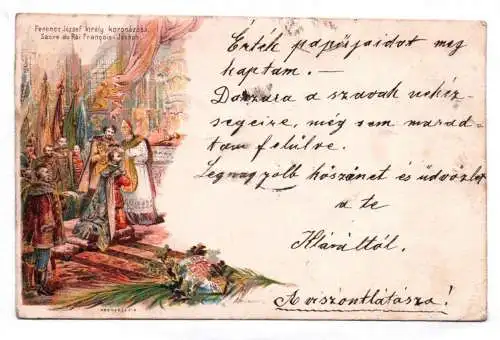 Ferencz József király koronázása.
Sacre du Roi François-Joseph.
Érték papósjaidot meg
kaptam. —
Daczára a szavak nehéz-
ségeire, még sem marad-
tam felülve.
Legnagyobb köszönet és üdvözlet
a te
Kláráltól.
A viszontlátásra!